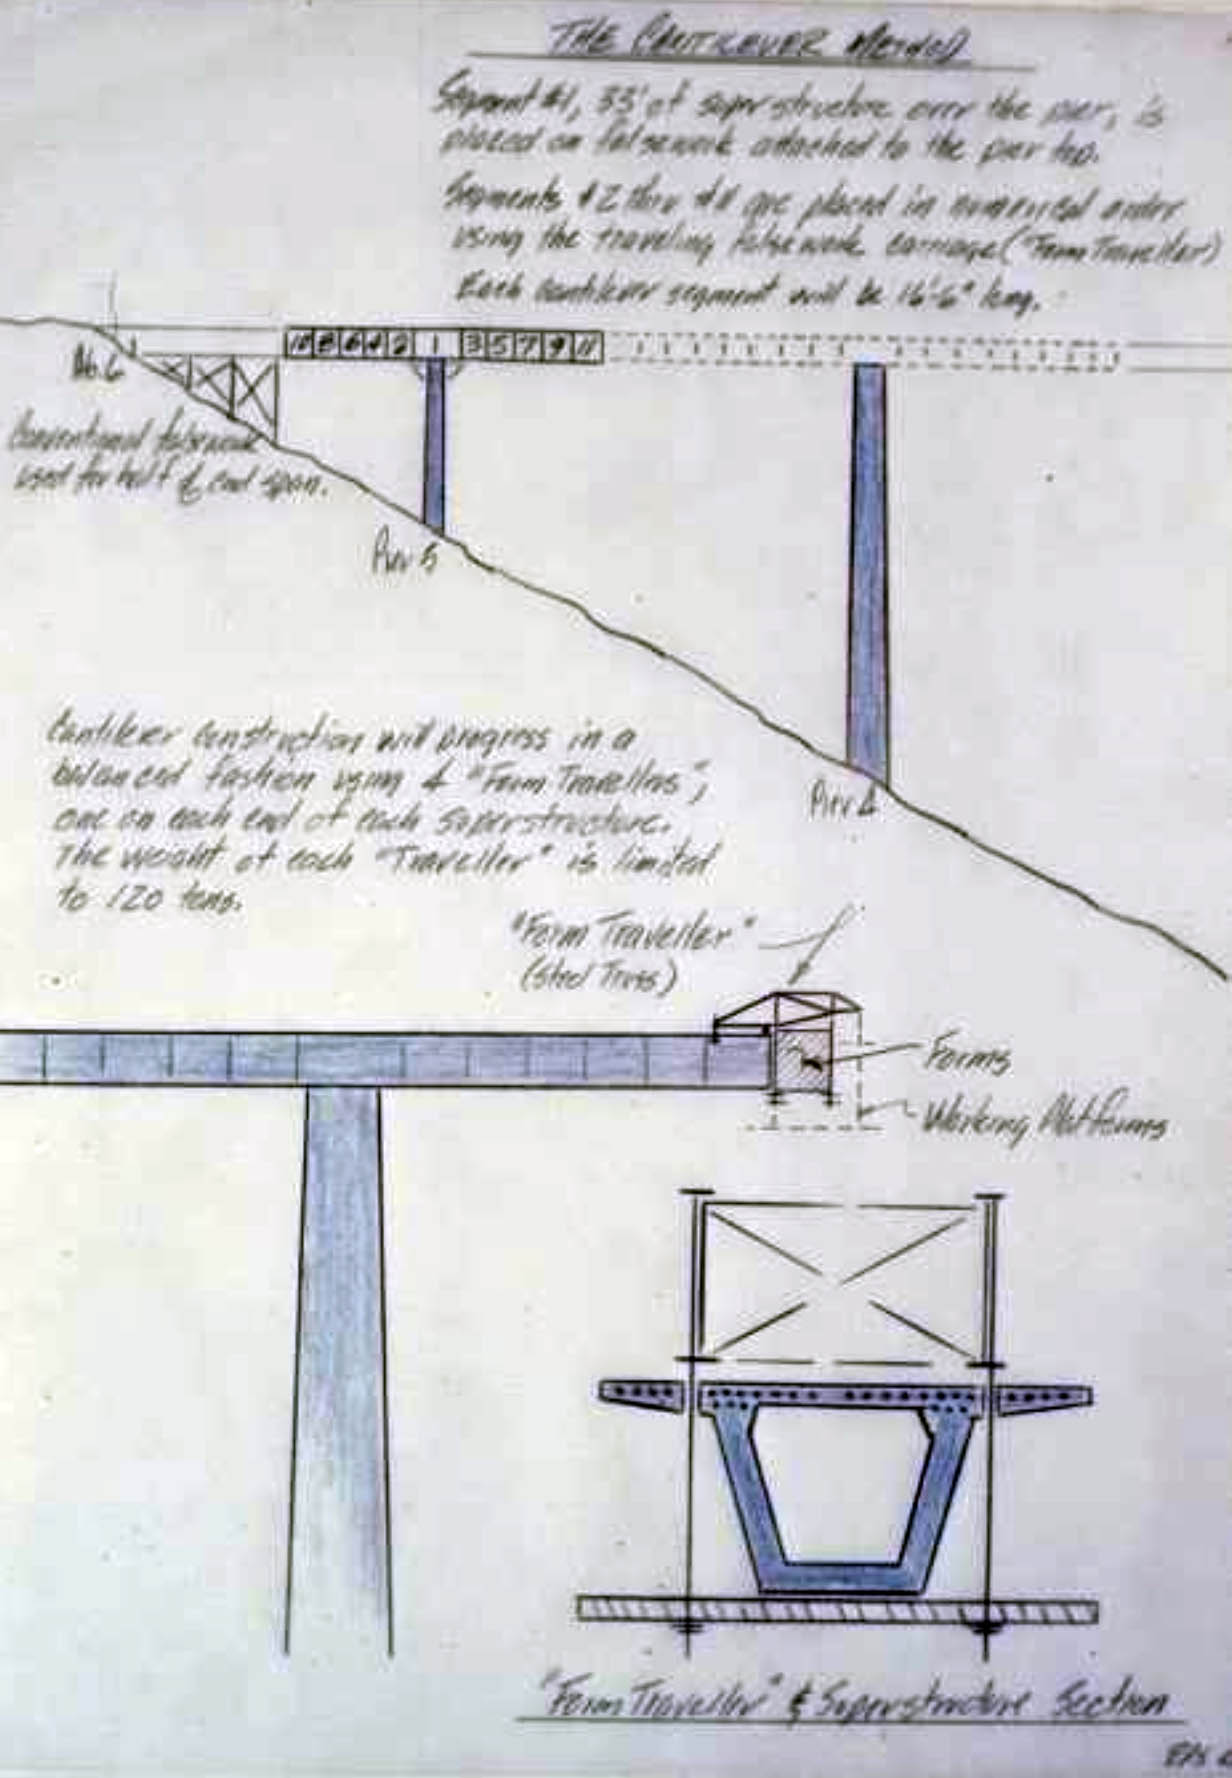 THE CANTILEVER METHOD
Segment #1, 33' of superstructure over the pier, is
placed on falsework attached to the pier top.
Segments #2 thru #11 are placed in numerical order
using the traveling falsework carriage ("Form Traveller")
Each cantilever segment will be 16'-6" long.
10 8 6 4 2 1 3 5 7 9 11
Ab. 6
Conventional falsework
used for half of end span.
Pier 5
Pier 4
Cantilever construction will progress in a
balanced fashion using 4 "Form Travellers",
one on each end of each superstructure.
The weight of each "Traveller" is limited
to 120 tons.
"Form Traveller"
(Steel Truss)
Forms
Working Platforms
"Form Traveller" & Superstructure Section